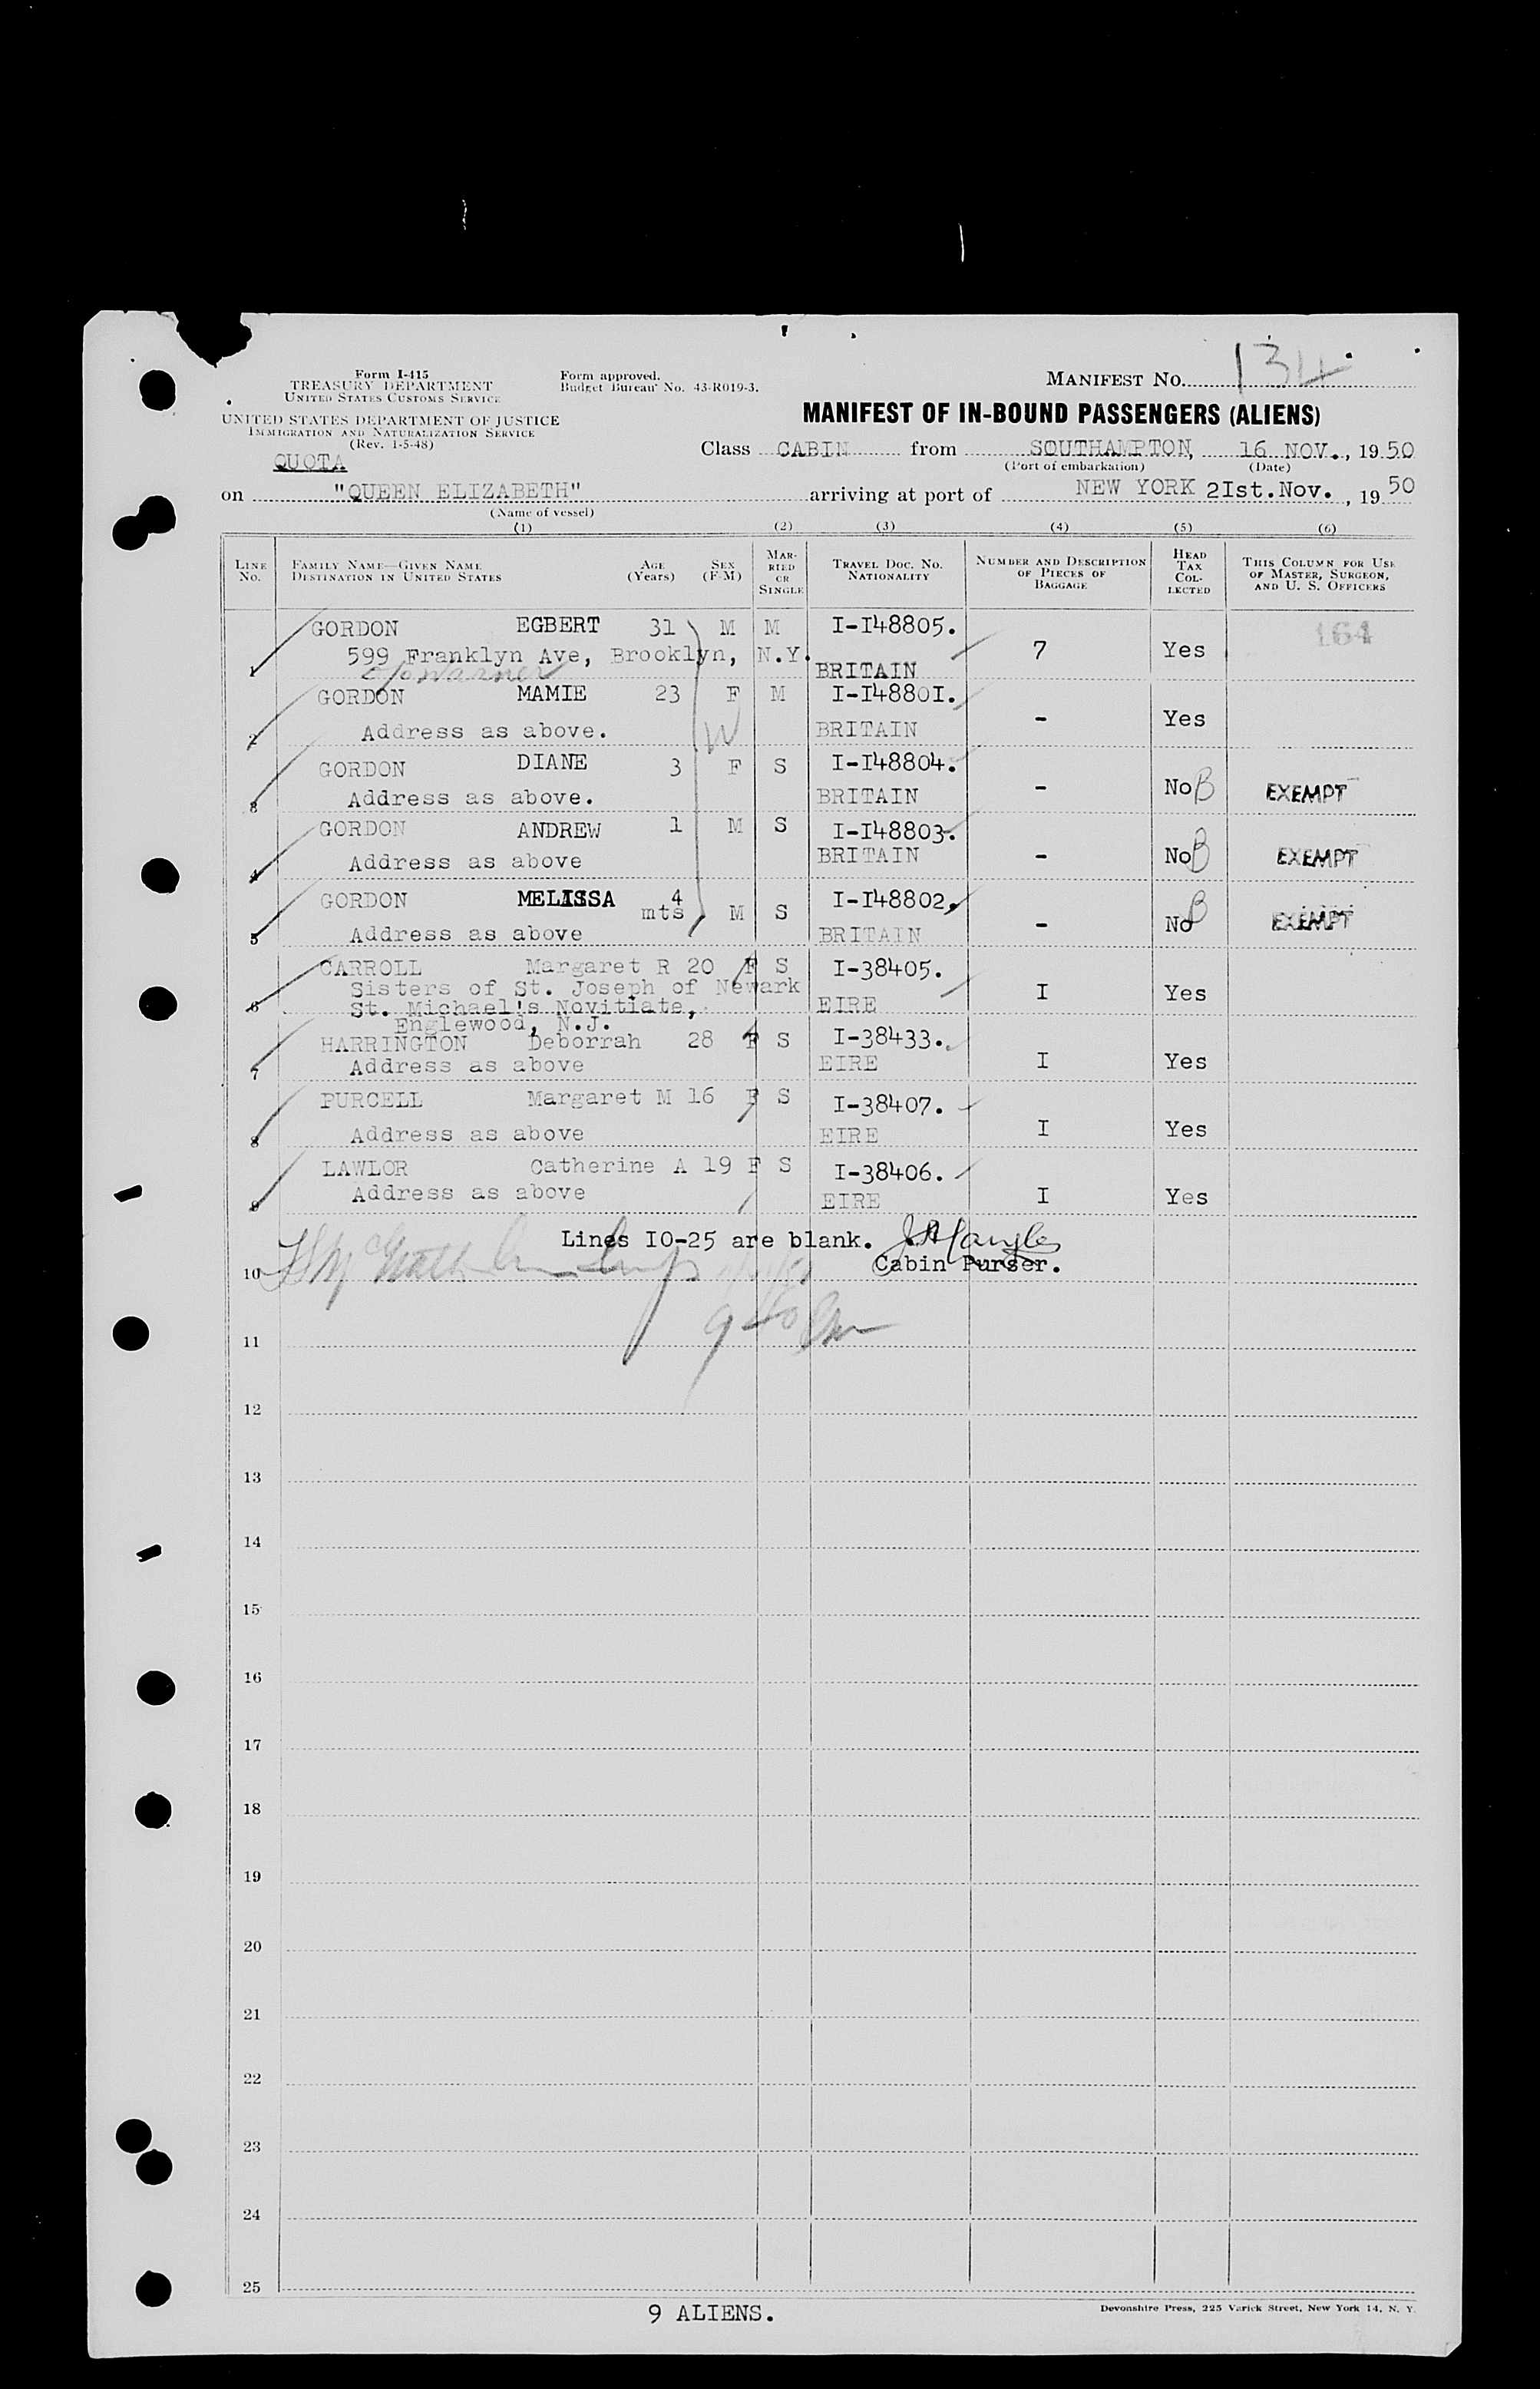 Form I-415
TREASURY DEPARTMENT
UNITED STATES CUSTOMS SERVICE
Form approved.
Budget Bureau No. 43-R019-3.
MANIFEST NO. 134
UNITED STATES DEPARTMENT OF JUSTICE
IMMIGRATION AND NATURALIZATION SERVICE
(Rev. 1-5-48)
MANIFEST OF IN-BOUND PASSENGERS (ALIENS)
QUOTA
Class CABIN from SOUTHAMPTON, 16 NOV., 1950
(Port of embarkation) (Date)
on "QUEEN ELIZABETH" arriving at port of NEW YORK 2Ist.Nov., 1950
(Name of vessel)
(1) (2) (3) (4) (5) (6)
LINE NO. FAMILY NAME—GIVEN NAME DESTINATION IN UNITED STATES AGE (YEARS) SEX (F-M) MARRIED OR SINGLE TRAVEL DOC. NO. NATIONALITY NUMBER AND DESCRIPTION OF PIECES OF BAGGAGE HEAD TAX COLLECTED THIS COLUMN FOR USE OF MASTER, SURGEON, AND U. S. OFFICERS
1 GORDON EGBERT 31 M M I-I48805. 7 Yes 164
599 Franklyn Ave, Brooklyn, N.Y. BRITAIN
c/o Warner
2 GORDON MAMIE 23 F M I-I4880I. - Yes
Address as above. BRITAIN
W
3 GORDON DIANE 3 F S I-I48804. - No B EXEMPT
Address as above. BRITAIN
4 GORDON ANDREW 1 M S I-I48803. - No B EXEMPT
Address as above BRITAIN
5 GORDON MELISSA 4 mts M S I-I48802. - No B EXEMPT
Address as above BRITAIN
6 CARROLL Margaret R 20 F S I-38405. I Yes
Sisters of St. Joseph of Newark
St. Michael's Novitiate, EIRE
Englewood, N.J.
7 HARRINGTON Deborrah 28 F S I-38433. I Yes
Address as above EIRE
8 PURCELL Margaret M 16 F S I-38407. I Yes
Address as above EIRE
9 LAWLOR Catherine A 19 F S I-38406. I Yes
Address as above EIRE
Lines IO-25 are blank.
Cabin Purser.
10
9 40 Pm
11
12
13
14
15
16
17
18
19
20
21
22
23
24
25
9 ALIENS.
Devonshire Press, 225 Varick Street, New York 14, N. Y.